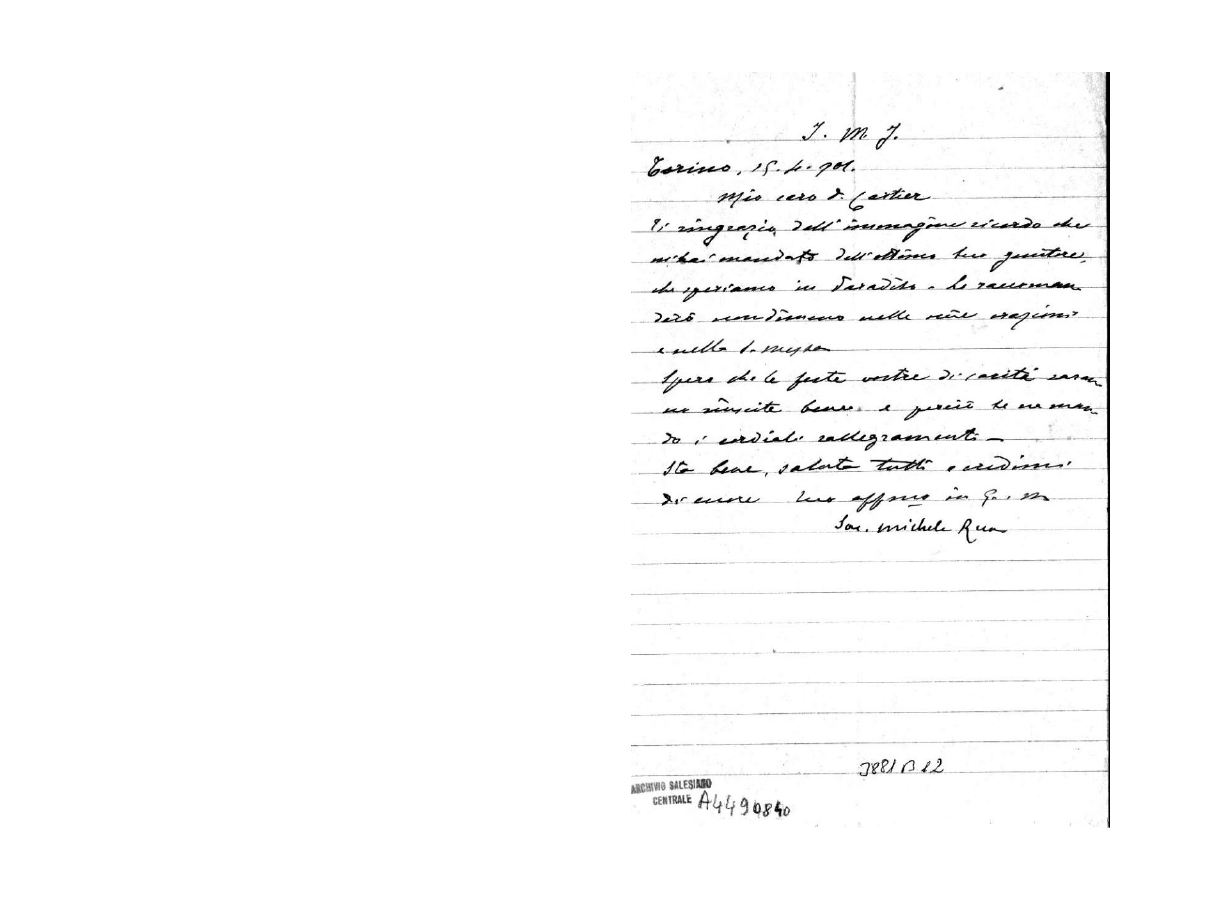 J. M. J.
Torino, 15. 4. 901.
Mio caro D. Cartier
Ti ringrazio dell'immagine ricordo che
mi hai mandato dell'ottimo tuo genitore,
che speriamo in Paradiso. Lo raccoman
derò nondimeno nelle mie orazioni
e nella S. Messa
Spero che le feste vostre di carità saran
no riuscite bene e perciò te ne man
do i cordiali rallegramenti –
Sta bene, saluta tutti e credimi
di cuore tuo affmo in G. e M
Sac. Michele Rua
3881 B 12
ARCHIVIO SALESIANO
CENTRALE A4490840